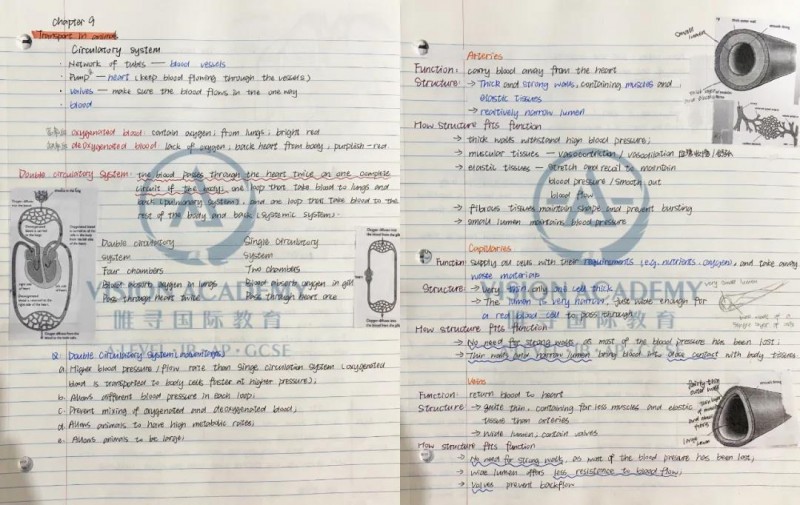 Chapter 9
Transport in animal
Circulatory system
· Network of tubes — blood vessels
· Pump — heart (keep blood flowing through the vessels)
· Valves — make sure the blood flows in the one way
· blood
oxygenated blood: contain oxygen; from lungs, bright red
deoxygenated blood: lack of oxygen, back heart from body, purplish-red
Double circulatory system: the blood passes through the heart twice on one complete
circuit of the body, one loop that take blood to lungs and
back (pulmonary system) and one loop that take blood to the
rest of the body and back (systemic system).
Double circulatory system
Four chambers
Blood absorb oxygen in lungs
Pass through heart twice
Single circulatory system
Two chambers
Blood absorb oxygen in gill
Pass through heart once
Double circulatory system (advantages)
a. Higher blood pressure / flow rate than singe circulation system (oxygenated
blood is transported to body cells faster at higher pressure);
b. Allows different blood pressure in each loop;
c. Prevent mixing of oxygenated and deoxygenated blood;
d. Allows animals to have high metabolic rates;
e. Allows animals to be large;
VISION ACADEMY
唯寻国际教育
A-LEVEL · IB · AP · GCSE
Small lumen
Arteries
Function: carry blood away from the heart
Structure: → Thick and strong walls, containing muscles and
elastic tissues
→ relatively narrow lumen
How structure fits function
→ thick walls withstand high blood pressure;
→ muscular tissues — vasoconstriction / vasodilation
→ elastic tissues — stretch and recoil to maintain
blood pressure / smooth out
blood flow
→ fibrous tissues maintain shape and prevent bursting
→ small lumen maintains blood pressure
Capillaries
Function: Supply all cells with their requirements (e.g. nutrients, oxygen), and take away
waste materials
Structure: → very thin, only one cell thick
→ The lumen is very narrow, just wide enough for
a red blood cell to pass through
very small lumen
How structure fits function
→ No need for strong walls, as most of the blood pressure has been lost;
→ Thin walls and narrow lumen bring blood into close contact with body tissues
Veins
Function: return blood to heart
Structure: → quite thin, containing far less muscles and elastic
tissue than arteries
→ Wide lumen, contain valves
fairly thin outer wall
large lumen
How structure fits function
→ No need for strong walls, as most of the blood pressure has been lost;
→ Wide lumen offers less resistance to blood flow;
→ Valves prevent backflow
VISION ACADEMY
唯寻国际教育